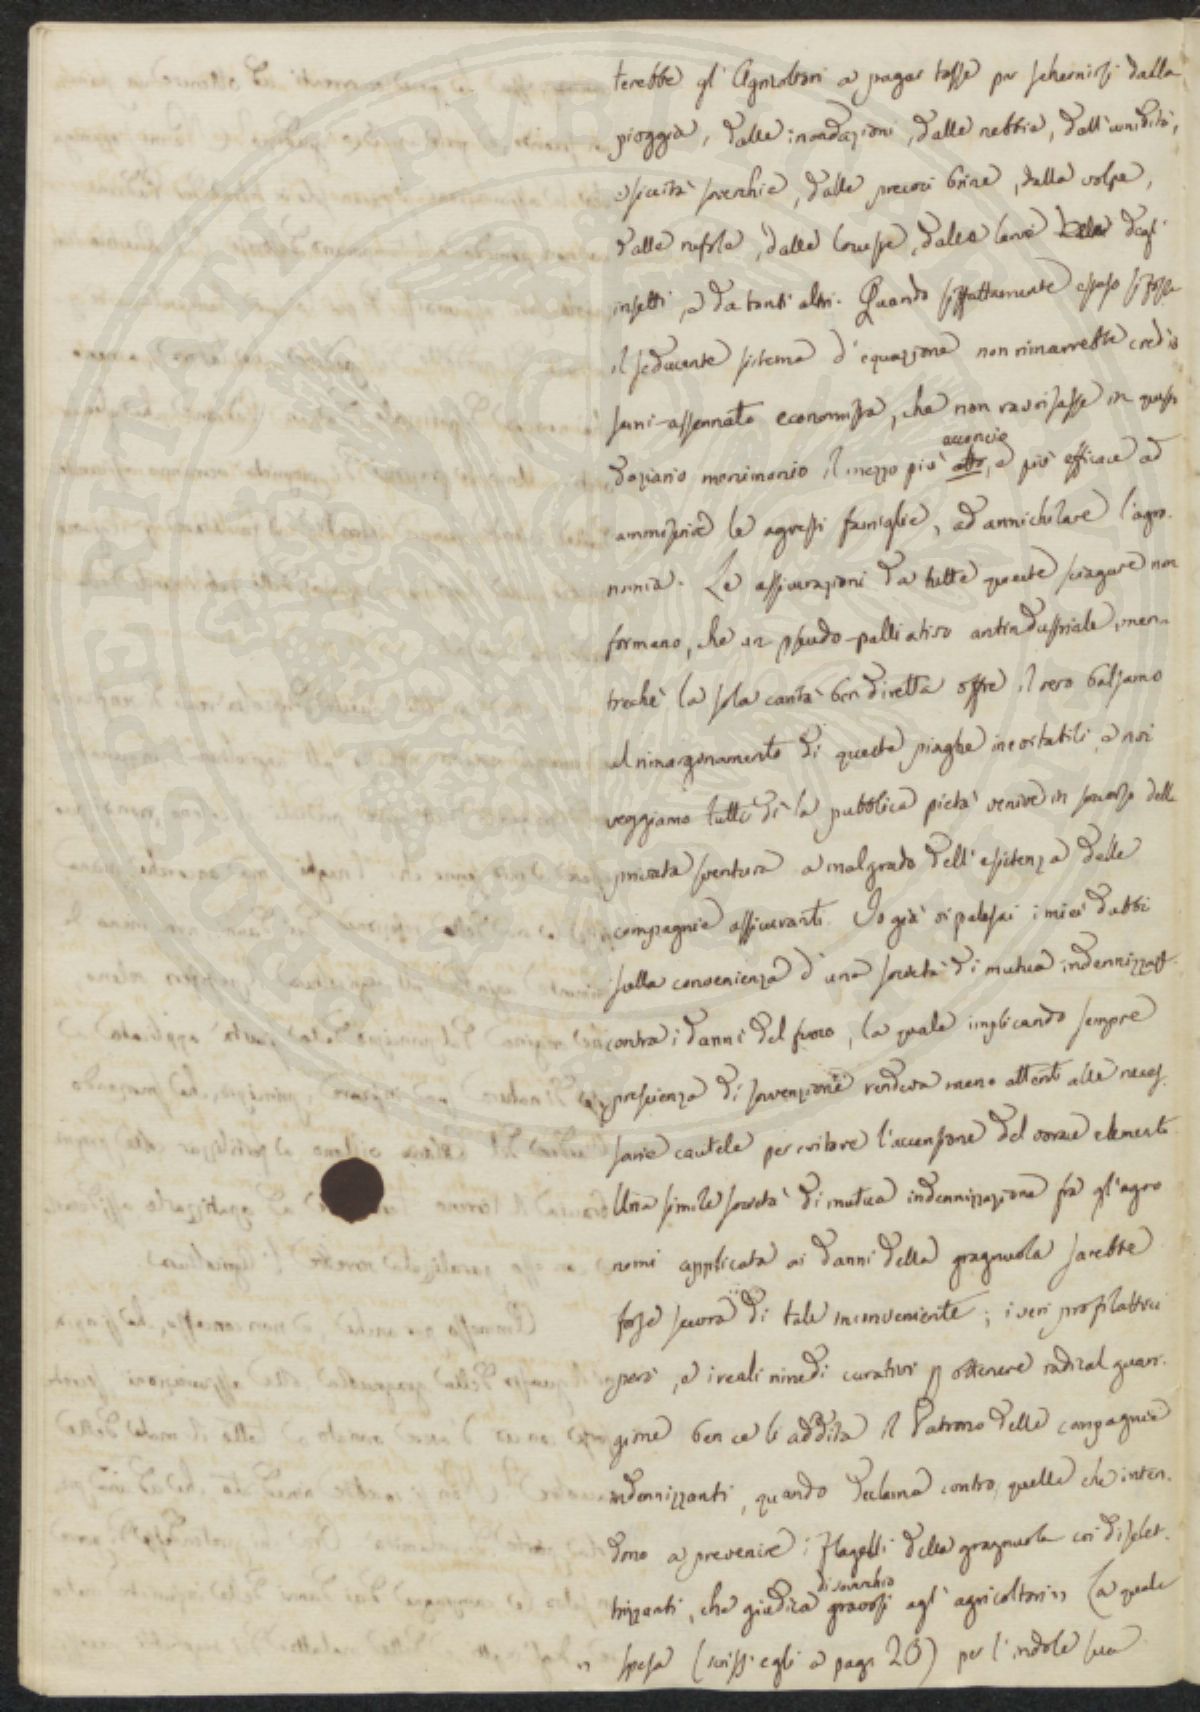 terebbe gl' Agricoltori a pagar tasse per schermirsi dalla
pioggia, dalle inondazioni, dalle nebbie, dall' umidità,
e siccità soverchie, dalle precoci brine, dalla volpe,
dalle rufole, dalle locuste, dalle larve degl'
insetti, e da tanti altri. Quando siffattamente esteso si fosse
il seducente sistema d' equazione non rimarrebbe credo
semi-assennato economista, che non ravvisasse in questo
daziario il mezzo più acconcio, e più efficace ad
ammiserire le agresti famiglie, ad annichilare l'agro-
nomia. Le assicurazioni da tutte queste sciagure non
formano, che un pseudo-palliativo antindustriale, men-
trechè la sola carità ben diretta offre il vero balsamo
al rimarginamento di queste piaghe inevitabili, e noi
veggiamo tutto dì la pubblica pietà venire in soccorso della
privata sventura a malgrado dell' esistenza delle
compagnie assicuranti. Io già vi palesai i miei dubbi
sulla convenienza d' una società di mutua indennizzaz.
contra i danni del fuoco, la quale implicando sempre
prescienza di sovvenzione rendeva meno attenti alle neces-
sarie cautele per evitare l'accensione del vorace elemento
Una simile società di mutua indennizzazione fra gl' agro
nomi applicata ai danni della gragnuola sarebbe
forse scevra di tale inconveniente; i veri profilattici
però, e i reali rimedi curativi p ottenere radical guari-
gione ben ce li addita il Patrono delle compagnie
indennizzanti, quando declama contro quelle che inten-
dono a prevenire i flagelli della gragnuola coi diselet-
trizzanti, che giudica di soverchio gravosi agl' agricoltori " La quale
" spesa (scriss' egli a pag. 20) per l' indole sua